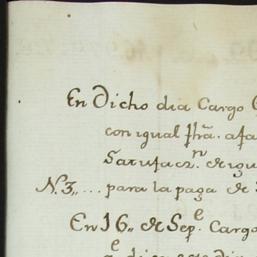 En Dicho dia Cargo
con igual fha. a fa
Satisfacz.n de igu
N.3,,... para la paga de
En 16,, de Sep.e Cargo